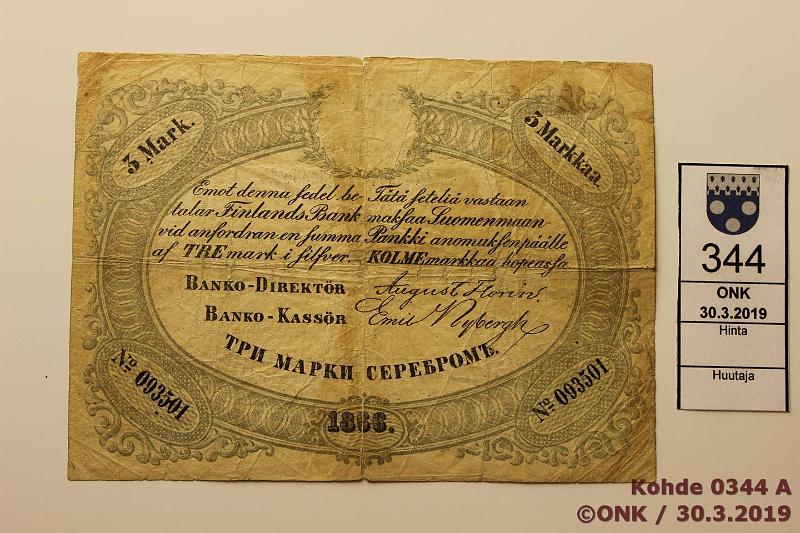 3 Mark.
3 Markkaa.
Emot denna sedel be-
talar Finlands Bank
vid anfordran en summa
af TRE mark i silfver.
Tätä seteliä vastaan
maksaa Suomenmaan
Pankki anomuksenpäälle
KOLME markkaa hopeassa
BANKO-DIREKTÖR August Florin.
BANKO-KASSÖR Emil Nybergh
ТРИ МАРКИ СЕРЕБРОМЪ.
No. 093501
No. 093501
1866.
344
ONK
30.3.2019
Hinta
Huutaja
Kohde 0344 A
©ONK / 30.3.2019